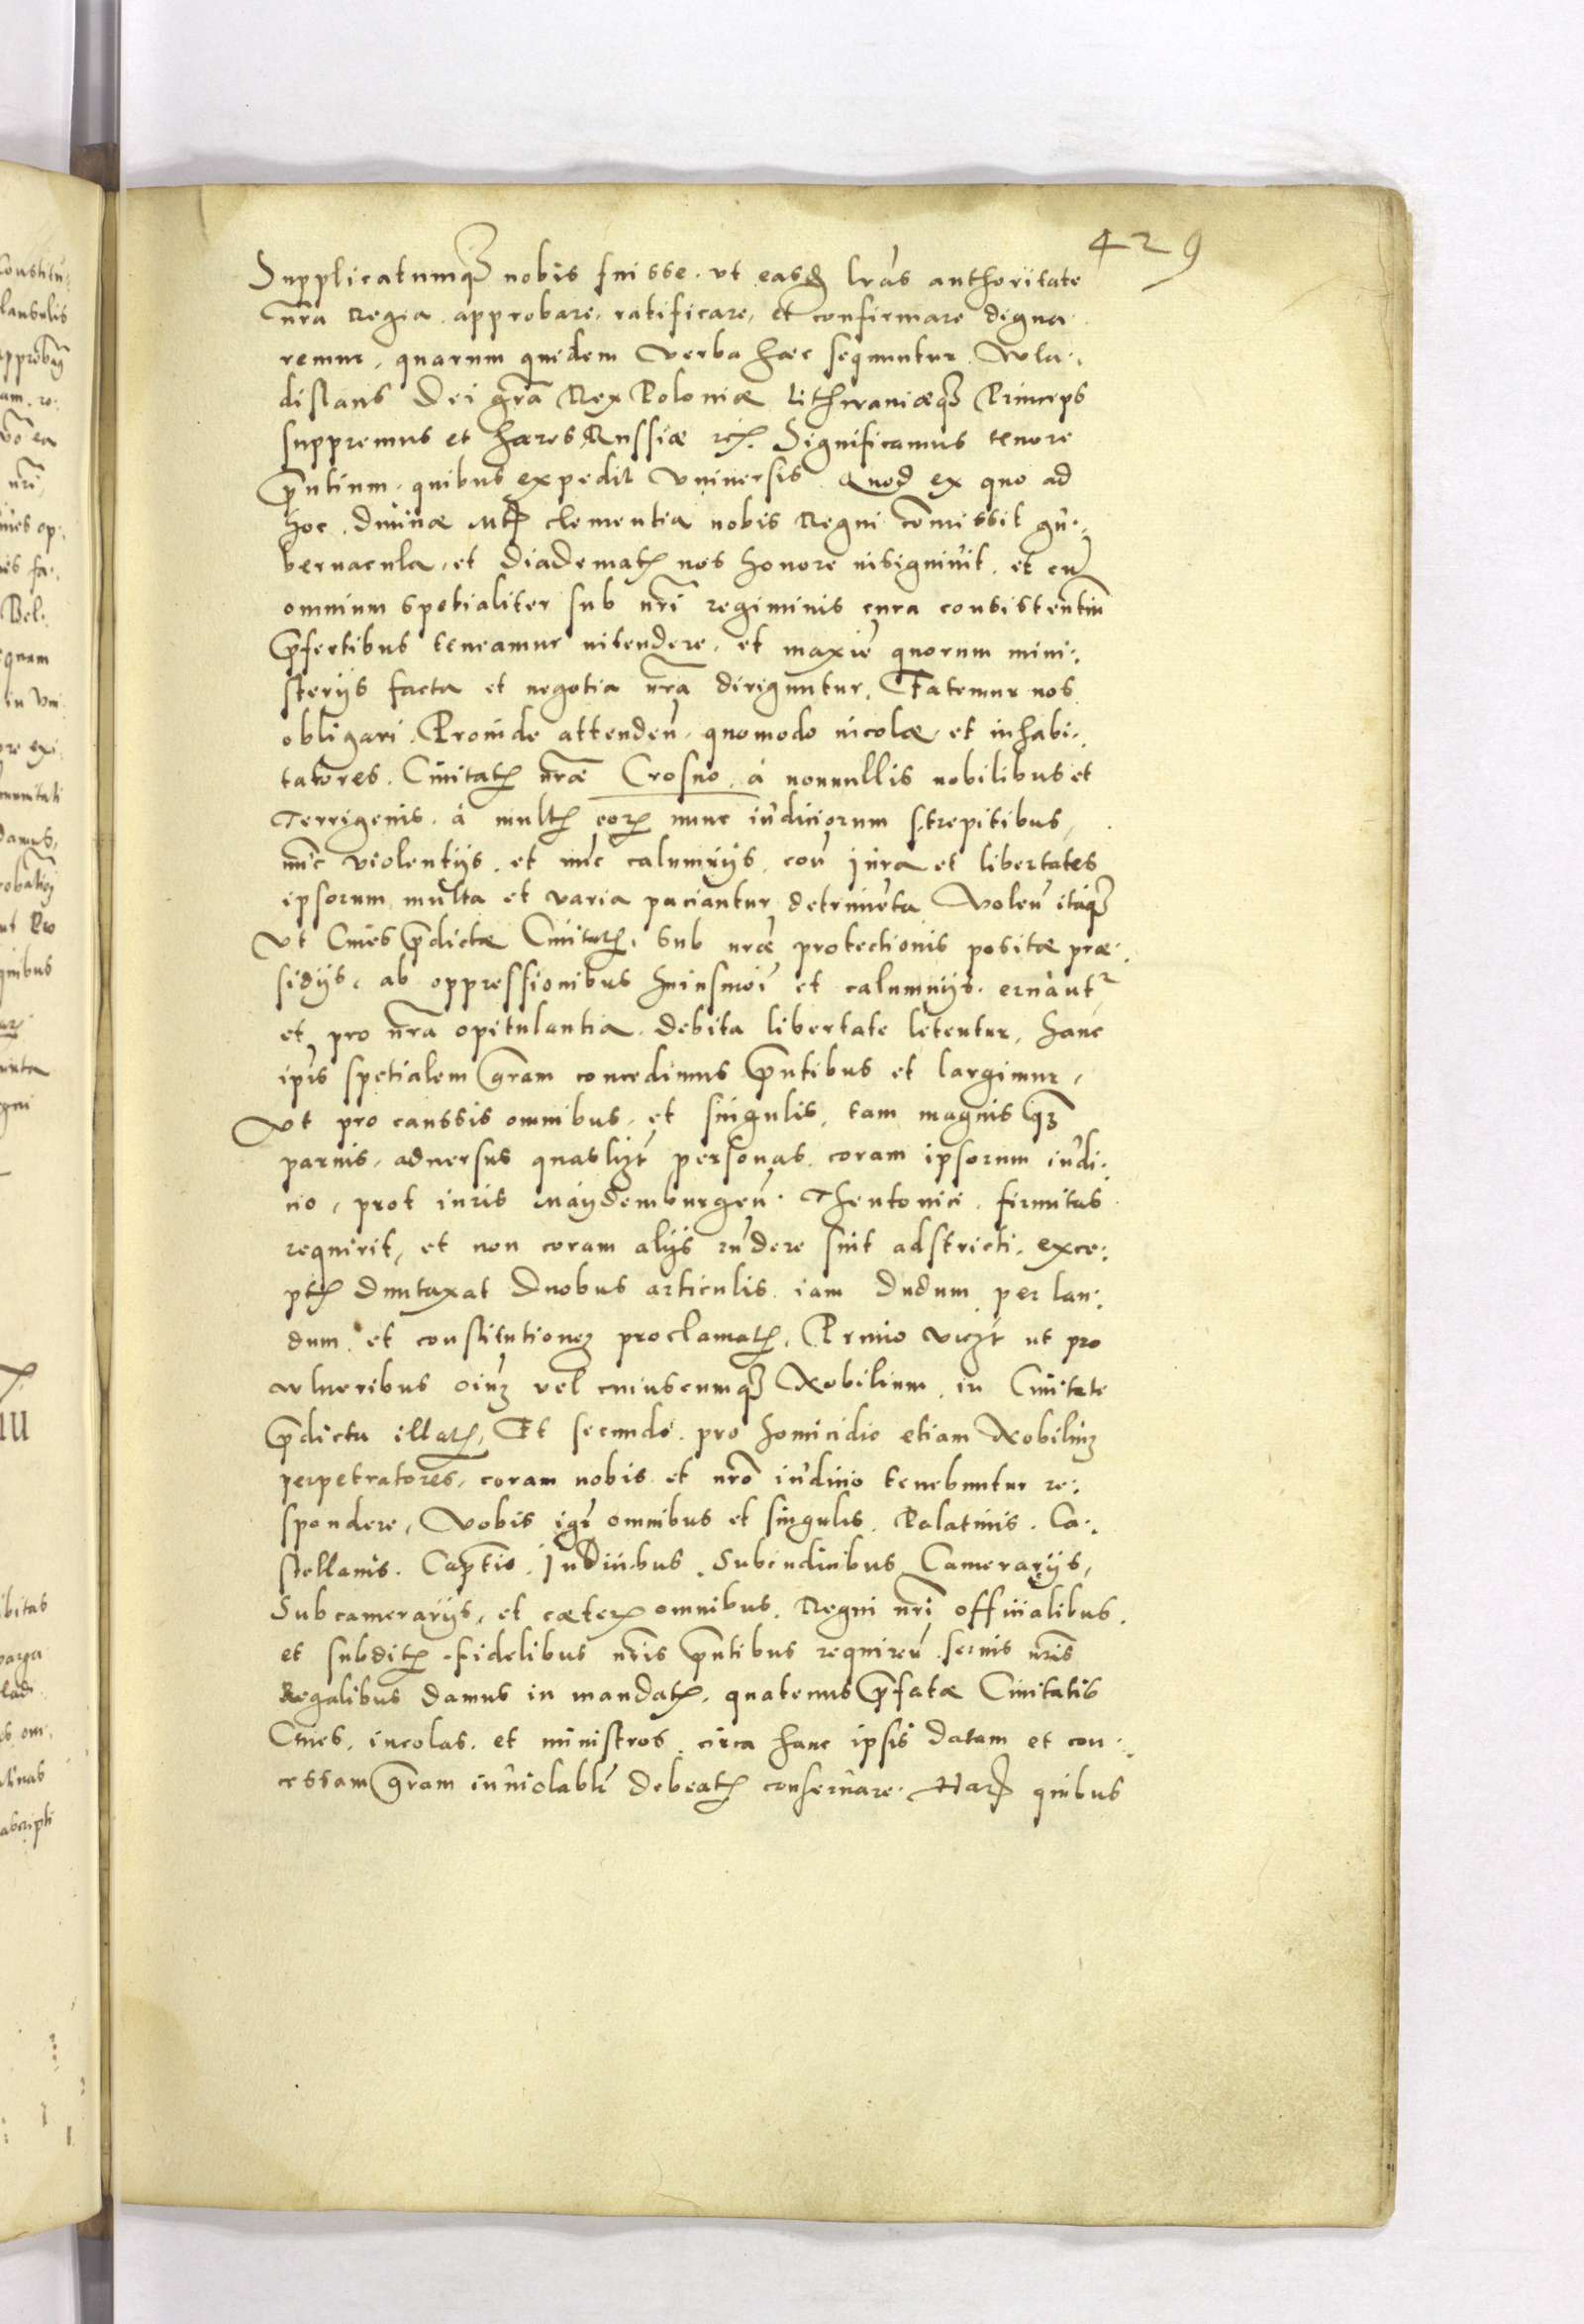 429
Supplicatumq₃ nobis fuisse. ut easd lrãs authoritate
nrã Regia. approbare, ratificare, et confirmare digna
remur, quarum quidem verba hæc sequuntur. Wla:
dislaus Dei grã Rex Poloniæ Lithwaniæq₃ Princeps
suppremus et hæres Russiæ etc. Significamus tenore
pñtium, quibus expedit universis. Quod ex quo ad
hoc. divinæ clementia nobis Regni cõmissit gu:
bernacula, et diadematis nos honore insignivit. et cũ
omnium spetialiter sub nrĩ regiminis cura consistentiũ
pfectibus teneamur intendere, et maxiẽ quorum mini:
sterijs facta et negotia nrã diriguntur. Fatemur nos
obligari. Proinde attendeñ. quomodo incolæ et inhabi:
tatores. Civitatis nræ Crosno. à nonnullis nobilibus et
Terrigenis. à multis eor nunc iudiciorum strepitibus,
nũc violentijs. et nũc calumnijs. coñ iura et libertates
ipsorum multa et varia paciantur detrimẽta Voleñ itaq₃
Ut Cives pdictæ Civitatis, sub nræ protectionis positæ præ:
sidijs, ab oppressionibus huiusmõi et calumnijs. eruãnt
et pro nrã opitulantia. debita libertate letentur, hanc
ipis spetialem grãm concedimus pñtibus et largimur,
Ut pro caussis omnibus, et singulis, tam magnis q₃
parvis, adversus quaslizt personas. coram ipsorum iudi:
cio, prot iuris Maydemburgeñ. Theutonici. firmitas
requirit, et non coram alijs rñdere sint adstricti, exce:
ptis duntaxat duobus articulis. iam dudum per lau:
dum. et constitutionem proclamatis. Primo vizt ut pro
vulneribus oiũm vel cuiuscumq₃ Nobilium. in Civitate
pdicta illatis, Et secundo. pro homicidio etiam Nobilium
perpetratores, coram nobis et nrõ iudicio tenebuntur re:
spondere, Vobis igr omnibus et singulis. Palatinis. Ca:
stellanis. Captis. Iudicibus. Subiudicibus Camerarijs,
Subcamerarijs, et cæteris omnibus. Regni nrĩ officialibus.
et subditis. fidelibus nris pñtibus requireñ. servis nris
Regalibus damus in mandatis. quatenus pfatæ Civitatis
Cives. incolas. et ministros. circa hanc ipsis datam et con:
cessam grãm inviolablr debeatis conservare. Har quibus